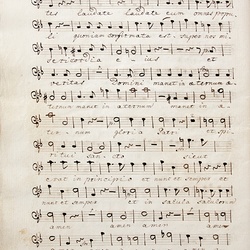 tes laudate laudate eum omnes popu
li quoniam confirmata est super nos mi
sericordia eius et
veritas Domini manet in aeternum
manet in aeternum manet in a
ternum gloria Patri et
ritui sancto sicut
erat in principio et nunc et semper et
nunc et semper et in saecula saeculorum
amen amen amen